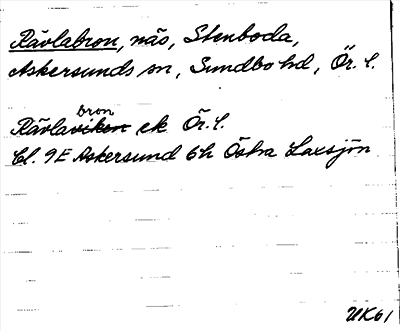 Rävlabron, näs, Stenboda,
Askersunds sn, Sundbo hd, Ör. l.
bron
Rävlaviken ek Ör. l.
Bl. 9E Askersund 6h Östra Laxsjön
UK61